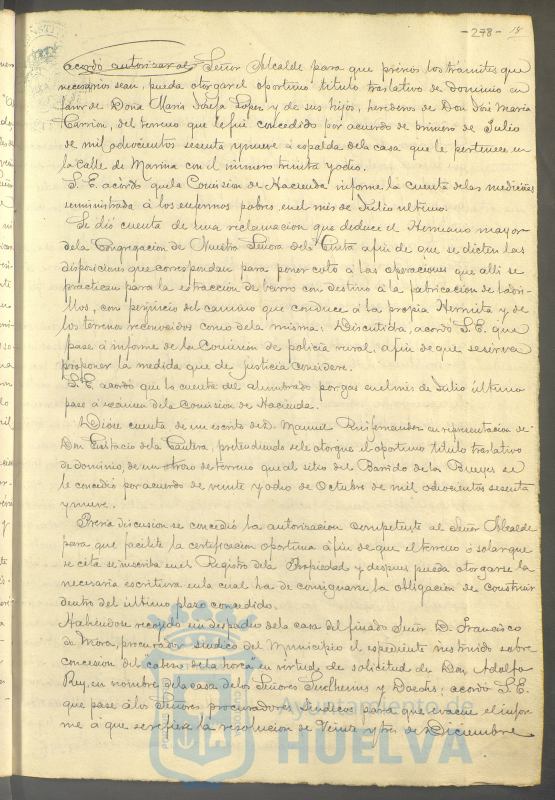 -278- 18
acordó autorizar al Señor Alcalde para que previos los trámites que
necesarios sean, pueda otorgar el oportuno titulo traslativo de dominio en
favor de Doña Maria Josefa Lopez y de sus hijos, herederos de Don José Maria
Carrion, del terreno que le fué concedido por acuerdo de primero de Julio
de mil ochocientos sesenta y nueve á espalda de la casa que le pertenece en
la calle de Marina con el número treinta y ocho.
S. E. acordó que la Comision de Hacienda informe la cuenta de las medicinas
suministrada á los enfermos pobres en el mes de Julio ultimo.
Se dió cuenta de una reclamacion que deduce el Hermano mayor
de la Congregacion de Nuestra Señora de la Cinta á fin de que se dicten las
disposiciones que correspondan para poner coto á las operaciones que alli se
practican para la extraccion de barro con destino á la fabricacion de ladri-
llos, con perjuicio del camino que conduce á la propia Hermita y de
los terrenos reconocidos como de la misma. Discutida, acordó S. E. que
pase á informe de la Comision de policia rural, á fin de que se sirva
proponer la medida que de justicia considere.
S. E. acordó que la cuenta del alumbrado por gas en el mes de Julio último
pase á exámen de la Comision de Hacienda.
Dióse cuenta de un escrito de D. Manuel Ruifernandez en representacion de
Don Eustacio de la Cautera, pretendiendo se le otorgue el oportuno titulo traslativo
de dominio, de un trozo de terreno que al sitio del Barrido de la Bueyes se
le concedió por acuerdo de veinte y ocho de Octubre de mil ochocientos sesenta
y nueve.
Previa discusion se concedió la autorizacion competente al Señor Alcalde
para que facilite la certificacion oportuna á fin de que el terreno ó solar que
se cita se inscriba en el Registro de la Propiedad y despues pueda otorgarse la
necesaria escritura en la cual ha de consignarse la obligacion de construir
dentro del último plazo concedido.
Habiendose recojido un despacho de la casa del finado Señor D. Francisco
de Mora, procurador sindico del Municipio el expediente instruido sobre
concesion del cabezo de la horca en virtud de solicitud de Don Adolfo
Rey, en nombre de la casa de los Señores Suelhenns y Doechs; acordó S. E.
que pase á los Señores procuradores Sindicos para que evacue el infor-
me á que se refiere la resolucion de Veinte y tres de Diciembre
Ayuntamiento de
HUELVA